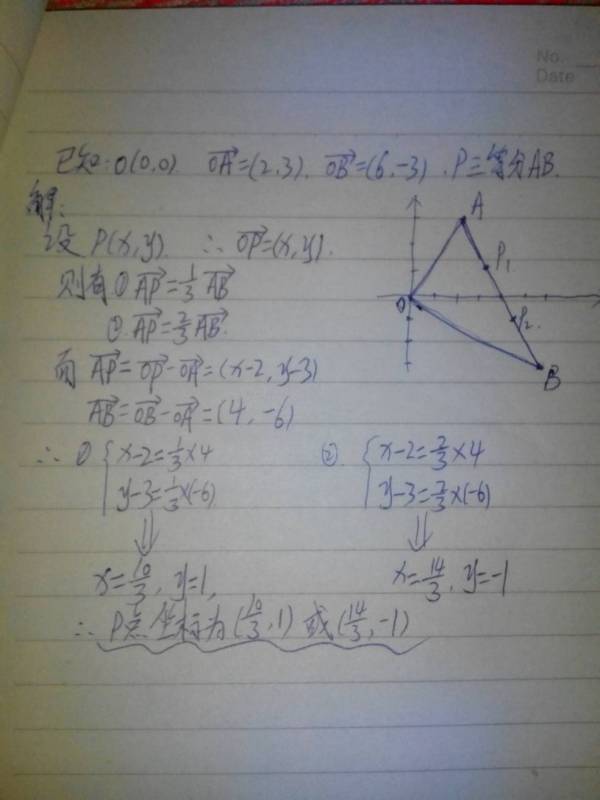 No.
Date
已知:O(0,0) OA→=(2,3), OB→=(6,-3), P三等分AB.
解:
设 P(x,y) ∴ OP→=(x,y).
则有①AP→=1/3 AB→
②.AP→=2/3 AB→.
而 AP→=OP→-OA→=(x-2, y-3)
AB→=OB→-OA→=(4, -6)
∴ ① { x-2=1/3×4
y-3=1/3×(-6)
② { x-2=2/3×4
y-3=2/3×(-6)
⇓ ⇓
x=10/3, y=1,
x=14/3, y=-1
∴ P点坐标为(10/3,1)或(14/3,-1)
A
P1
O
P2
B